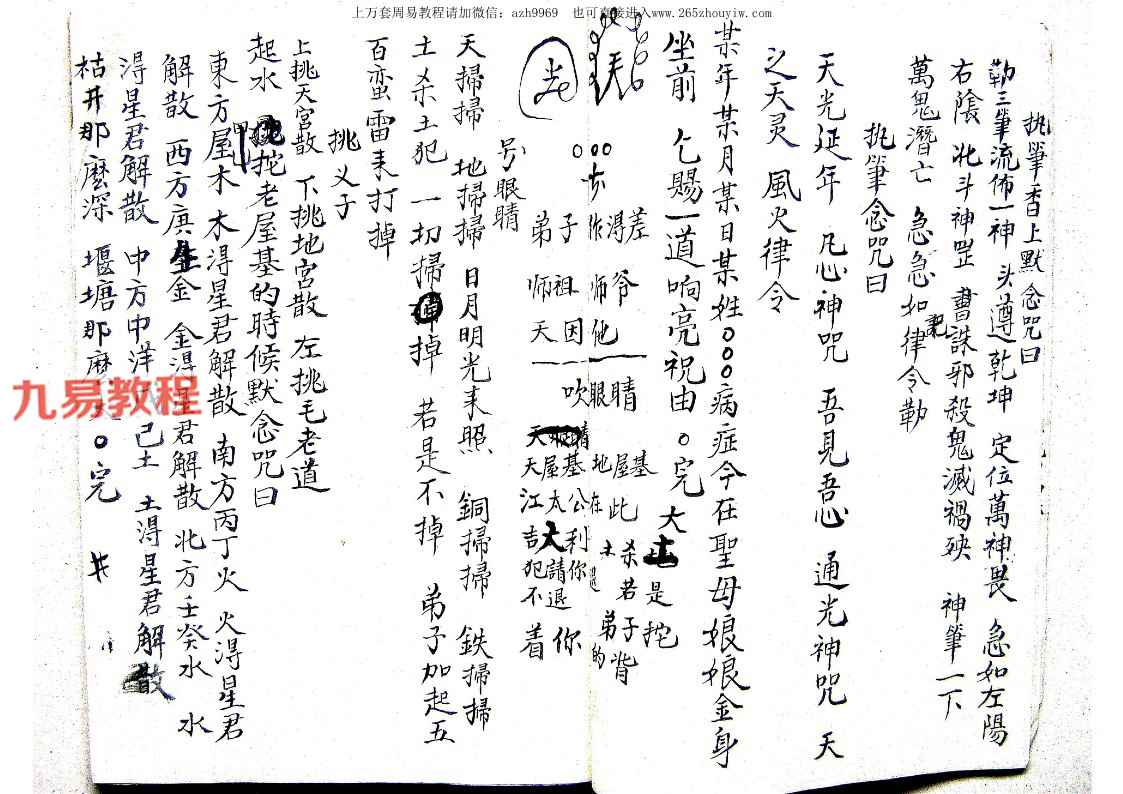 上万套周易教程请加微信：azh9969　也可直接进入www.265zhouyiw.com
执筆香上默念咒曰
勒三筆流佈一神　头遵乾坤　定位萬神畏　急如左陽
右陰　北斗神罡　書誅邪殺鬼滅禍殃　神筆一下
萬鬼潛亡　急急如律令勒
执筆念咒曰
天光延年　凡心神咒　吾見吾心　通光神咒　天
之天灵　風火律令
某年某月某日某姓○○○病症今在聖母娘娘金身
坐前　乞賜一道响亮祝由○完
大土是挖
差爷　睛　屋基此杀若子背
作得师他　眼　地在土　弟的
子祖因吹
弟师天
天屋基
江太公
吉大利
犯請你
不退
着你
号眼睛
天掃掃　地掃掃　日月明光来照　銅掃掃　鉄掃掃
土杀土犯　一切掃掉　若是不掉　弟子加起五
百蛮雷来打掉
挑义子
上挑天宮散　下挑地宮散　左挑毛老道
起水　挖老屋基的時候默念咒曰
東方屋木　木得星君解散　南方丙丁火　火得星君
解散　西方庚金　金得星君解散　北方壬癸水　水
得星君解散　中方中洋戊己土　土得星君解散
枯井那麽深　堰塘那麽　○完
九易教程